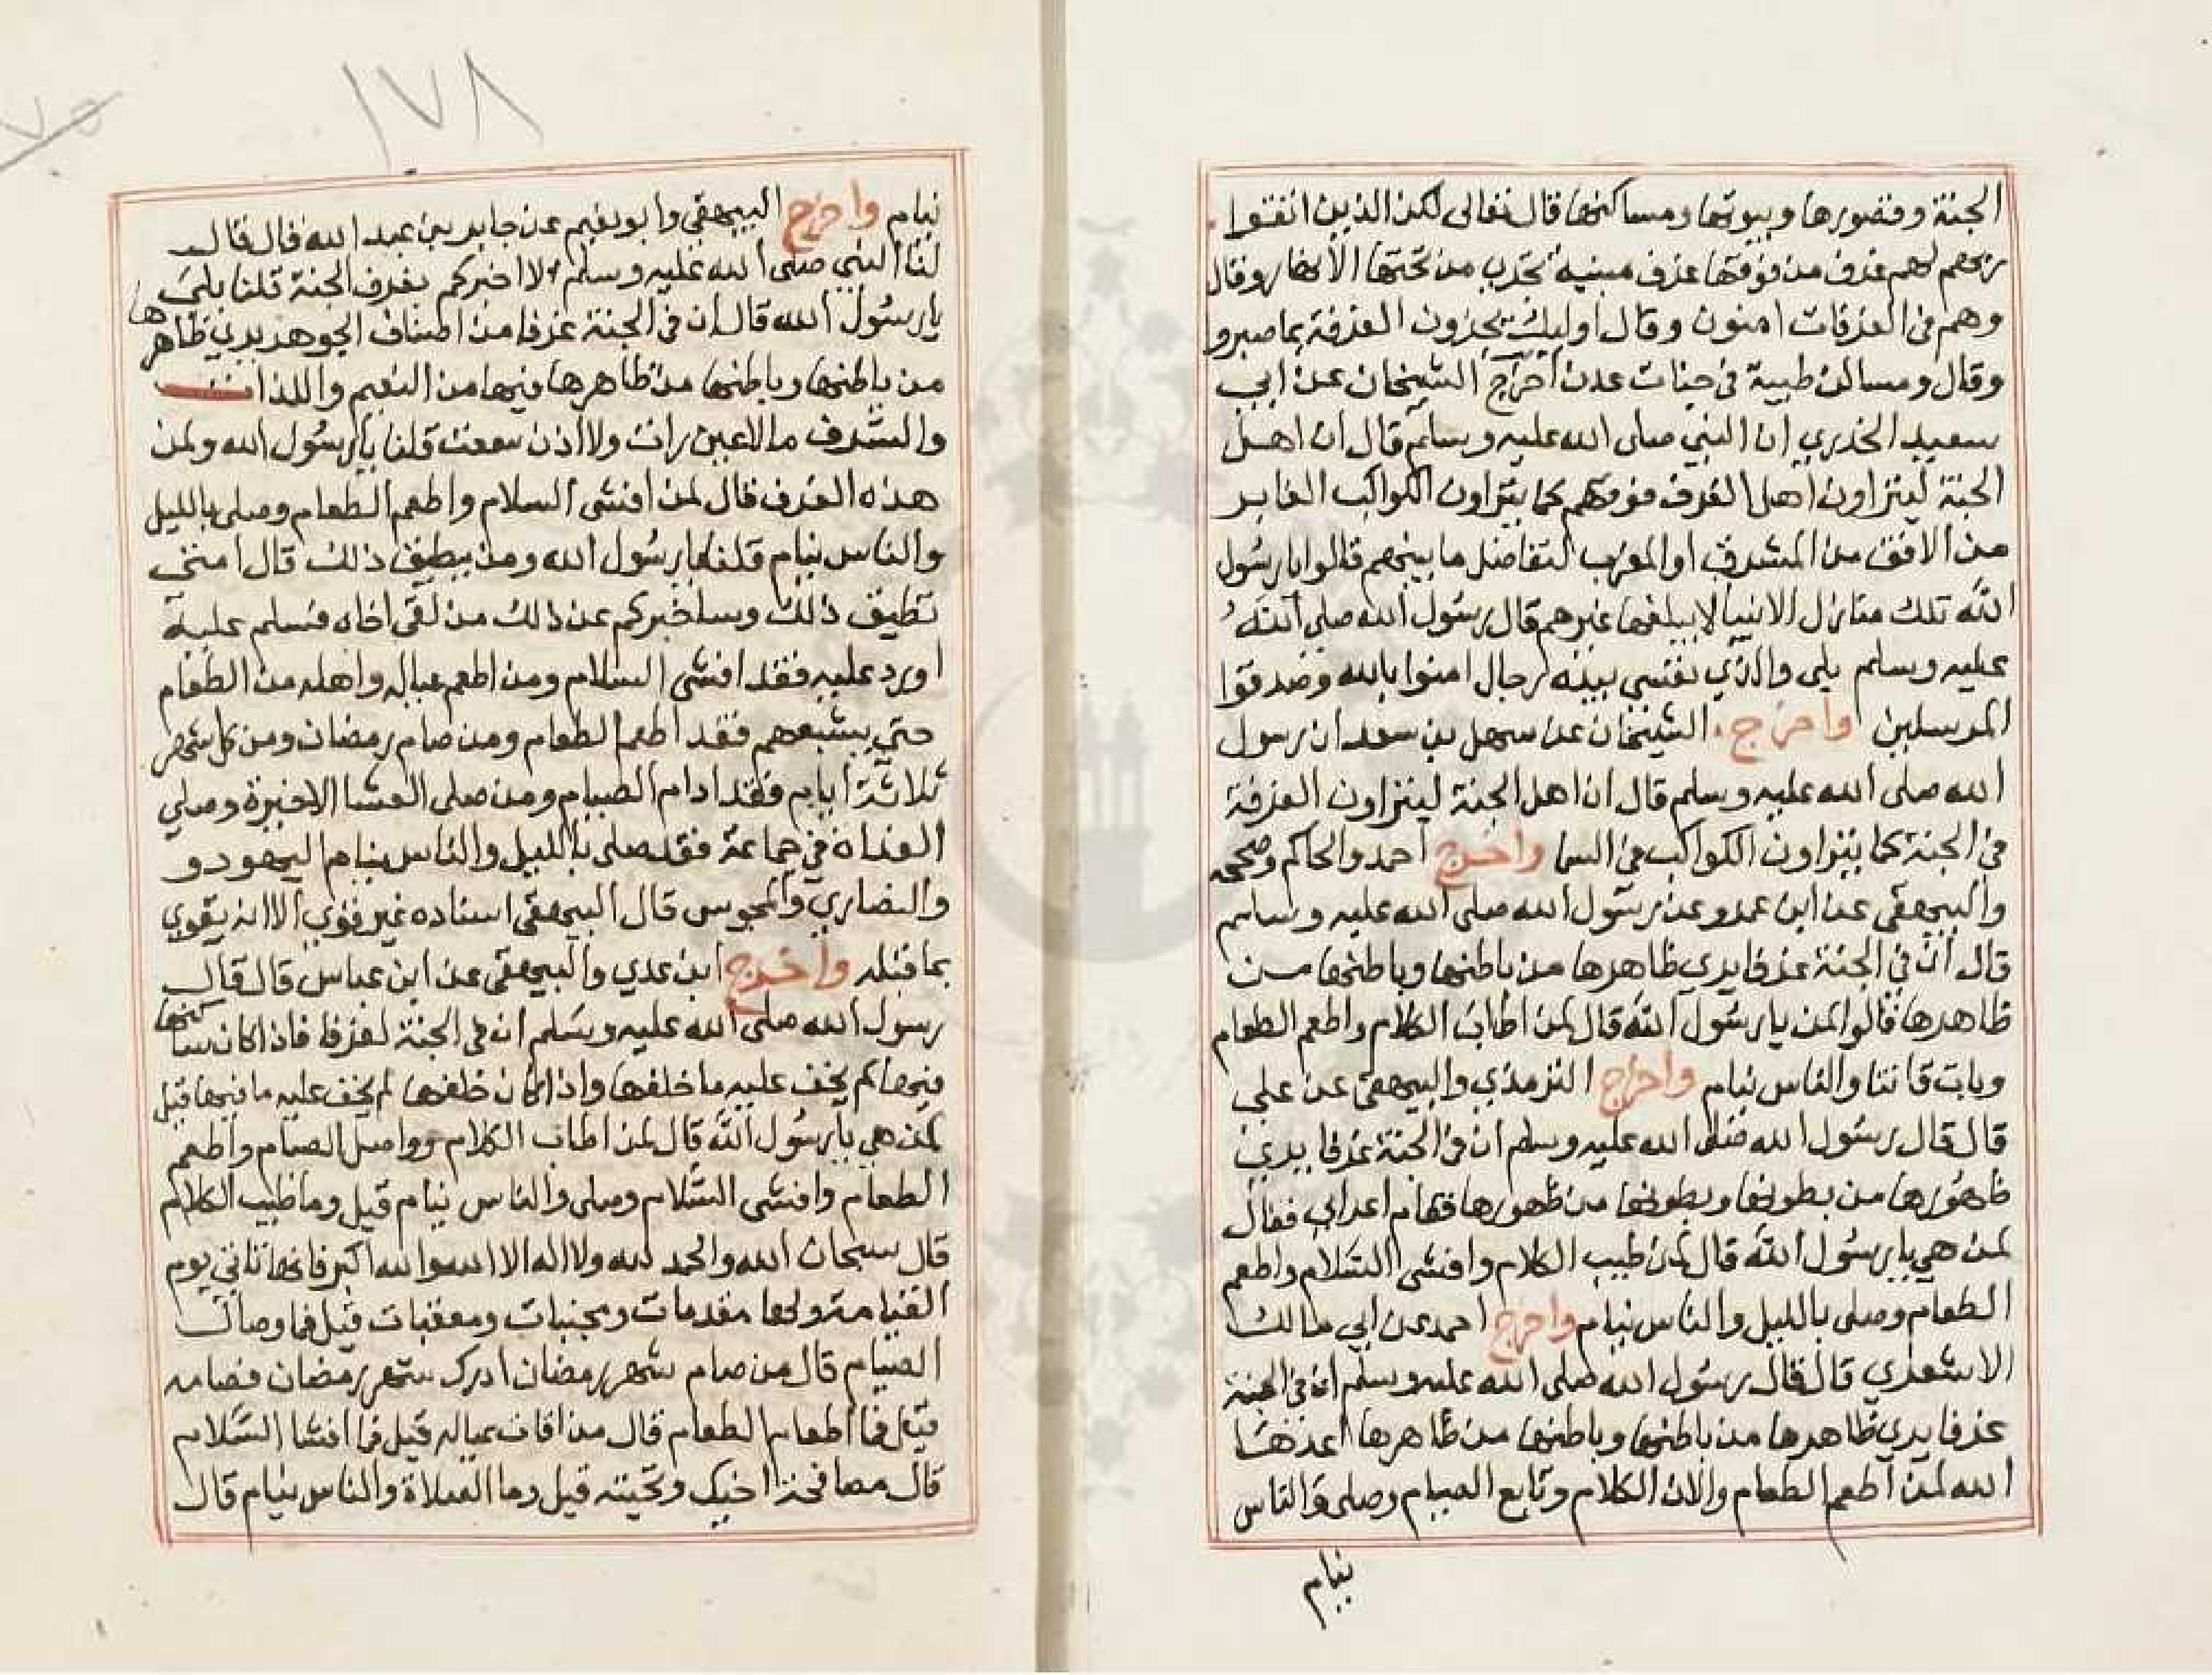 الجنة وقصورها وبيوتها ومساكنها قال تعالى لكن الذين اتقوا
ربهم لهم غرف من فوقها غرف مبنية تجري من تحتها الأنهار وقال
وهم في الغرفات امنون وقال اوليك يجزون الغرفة بما صبرو
وقال ومساكن طيبة في جنات عدن اخرج الشيخان عن ابي
سعيد الخدري ان النبي صلى الله عليه وسلم قال ان اهل
الجنة ليتراون اهل الغرف فوقهم كما يتراون الكواكب الغابر
من الافق من المشرق او المغرب لتفاضل ما بينهم قالوا يا رسول
الله تلك منازل الانبيا لا يبلغها غيرهم قال رسول الله صلى الله
عليه وسلم بلى والذي نفسي بيده رجال امنوا بالله وصدقوا
المرسلين واخرج الشيخان عن سهل بن سعد ان رسول
الله صلى الله عليه وسلم قال ان اهل الجنة ليتراون الغرفة
في الجنة كما يتراون الكواكب في السما واخرج احمد والحاكم وصححه
والبيهقي عن ابن عمرو عن رسول الله صلى الله عليه وسلم
قال ان في الجنة غرفا يرى ظاهرها من باطنها وباطنها من
ظاهرها قالوا لمن يا رسول الله قال لمن اطاب الكلام واطعم الطعام
وبات قانتا والناس نيام واخرج الترمذي والبيهقي عن علي
قال قال رسول الله صلى الله عليه وسلم ان في الجنة غرفا يرى
ظهورها من بطونها وبطونها من ظهورها فقام اعرابي فقال
لمن هي يا رسول الله قال لمن طيب الكلام وافشى السلام واطعم
الطعام وصلى بالليل والناس نيام واخرج احمد عن ابي مالك
الاشعري قال قال رسول الله صلى الله عليه وسلم ان في الجنة
غرفا يرى ظاهرها من باطنها وباطنها من ظاهرها اعدها
الله لمن اطعم الطعام والان الكلام وتابع الصيام وصلى والناس
نيام
١٧٨
نيام واخرج البيهقي وابو نعيم عن جابر بن عبد الله قال قال
لنا النبي صلى الله عليه وسلم الا اخبركم بغرف الجنة قلنا بلى
يا رسول الله قال ان في الجنة غرفا من اصناف الجوهر يرى ظاهرها
من باطنها وباطنها من ظاهرها فيها من النعيم واللذات
والشرف ما لا عين رات ولا اذن سمعت قلنا يا رسول الله ولمن
هذه الغرف قال لمن افشى السلام واطعم الطعام وصلى بالليل
والناس نيام قلنا يا رسول الله ومن يطيق ذلك قال امتي
تطيق ذلك وساخبركم عن ذلك من لقى اخاه فسلم عليه
او رد عليه فقد افشى السلام ومن اطعم عياله واهله من الطعام
حتى يشبعهم فقد اطعم الطعام ومن صام رمضان ومن كل شهر
ثلاثة ايام فقد ادام الصيام ومن صلى العشا الاخيرة وصلى
الغداة في جماعة فقد صلى بالليل والناس نيام اليهود و
والنصارى والمجوس قال البيهقي اسناده غير قوي الا انه يقوي
بما قبله واخرج ابن عدي والبيهقي عن ابن عباس قال قال
رسول الله صلى الله عليه وسلم ان في الجنة لغرفا فاذا كان ساكنها
فيها لم يخف عليه ما خلفها واذا كان خلفها لم يخف عليه ما فيها قيل
لمن هي يا رسول الله قال لمن اطاب الكلام وواصل الصيام واطعم
الطعام وافشى السلام وصلى والناس نيام قيل وما طيب الكلام
قال سبحان الله والحمد لله ولا اله الا الله والله اكبر فانها تاتي يوم
القيامة ولها مقدمات ومجنبات ومعقبات قيل فما وصال
الصيام قال من صام شهر رمضان ادرك شهر رمضان فصامه
قيل فما اطعام الطعام قال من اقات عياله قيل فما افشا السلام
قال مصافحة اخيك وتحيته قيل وما الصلاة والناس نيام قال